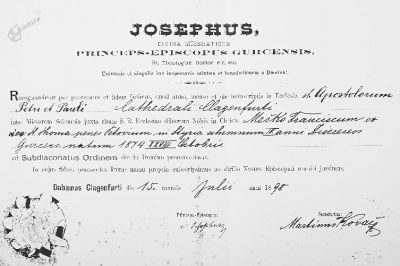 Kamra
JOSEPHUS,
DIVINA MISERATIONE
PRINCEPS-EPISCOPUS GURCENSIS,
St. Theologiae Doctor etc. etc.
Universis et singulis has inspecturis salutem et benedictionem a Domino!
Recognoscimus per praesentes et fidem facimus, quod anno, mense et die infrascriptis in Ecclesia st. Apostolorum
Petri et Pauli Cathedrali Clagenfurti
inter Missarum Solemnia juxta ritum S. R. Ecclesiae dilectum Nobis in Christo Meško Franciscum ex
St. Thoma penes Petovium in Styria alumnum IV anni Dioeceseos
Gurcens. natum 1874 XXVIII Octobris
ad Subdiaconatus Ordinem rite in Domino promoverimus.
In cujus fidem praesentes literas manu propria subscripsimus ac sigillo Nostro Episcopali muniri jussimus.
Dabamus Clagenfurti die 15. mensis Julii anni 1898
Princeps-Episcopus:
Martinus Kovač